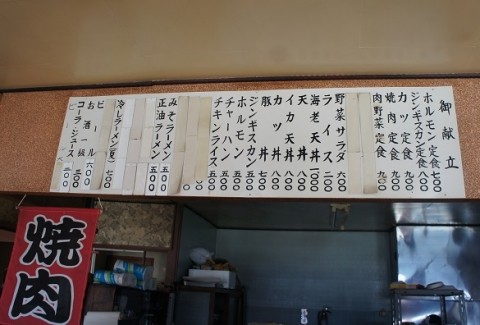 御献立
ホルモン定食 七〇〇
ジンギスカン定食 八〇〇
カツ定食 九〇〇
焼肉定食 九〇〇
肉野菜定食 九〇〇
野菜サラダ 六〇〇
ライス 二〇〇
海老天丼
イカ天丼 八〇〇
天丼 八〇〇
カツ丼 八〇〇
豚丼 七〇〇
ジンギスカン 五〇〇
ホルモン 五〇〇
チャーハン 五〇〇
チキンライス 五〇〇
みそラーメン 五〇〇
正油ラーメン 五〇〇
冷しラーメン(夏)
ビール
お酒一級
コーラ・ジュース
焼肉